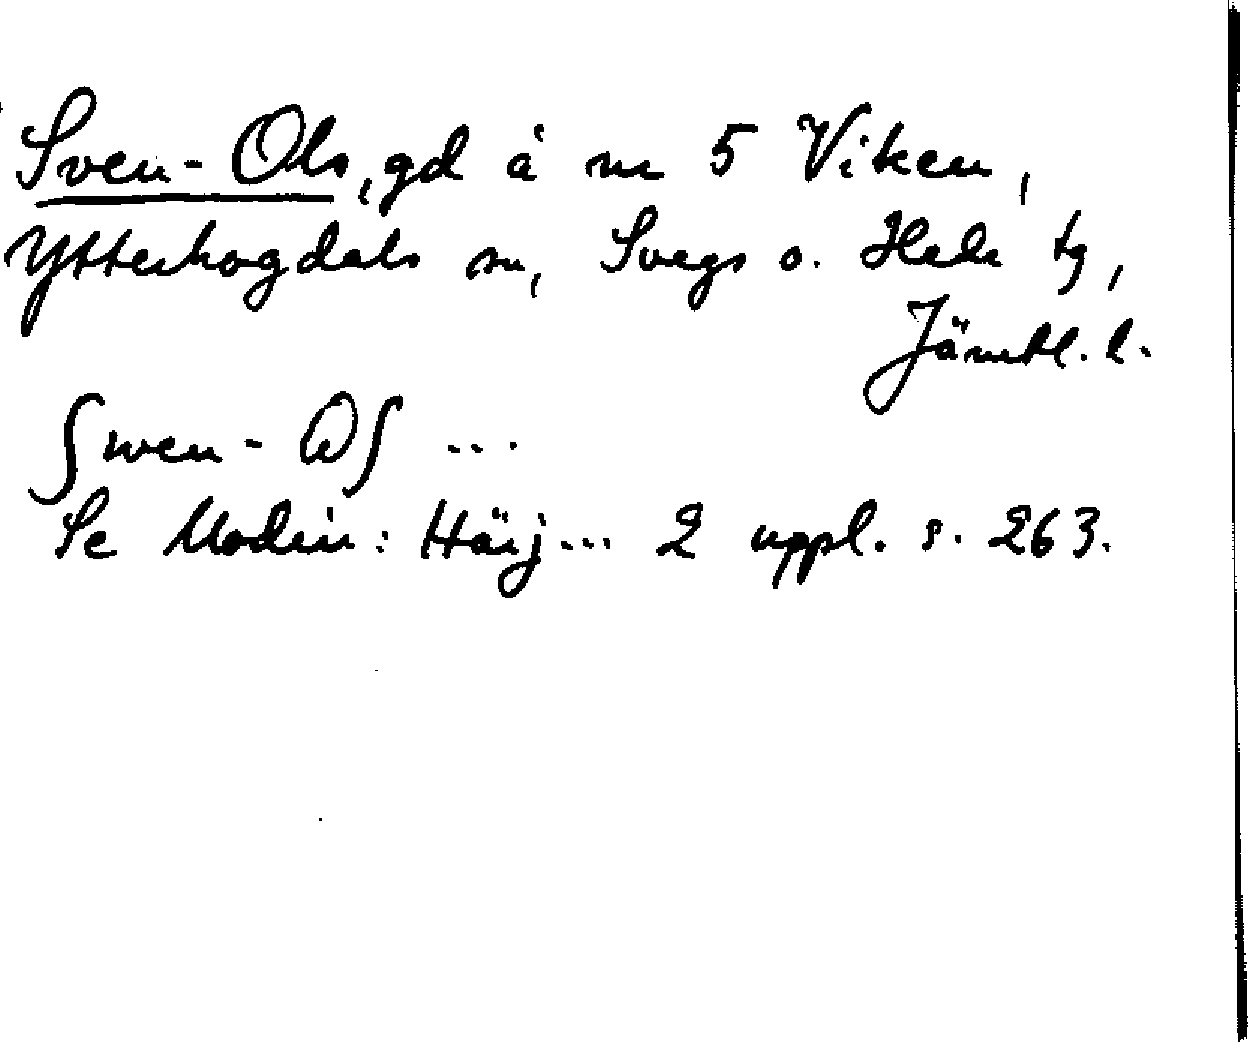 Sven-Ols, gd å nr 5 Viken,
Ytterhogdals sn, Svegs o. Hede tg,
Jämtl. l.
Swen-Ols ...
Se Modin: Härj... 2 uppl. s. 263.